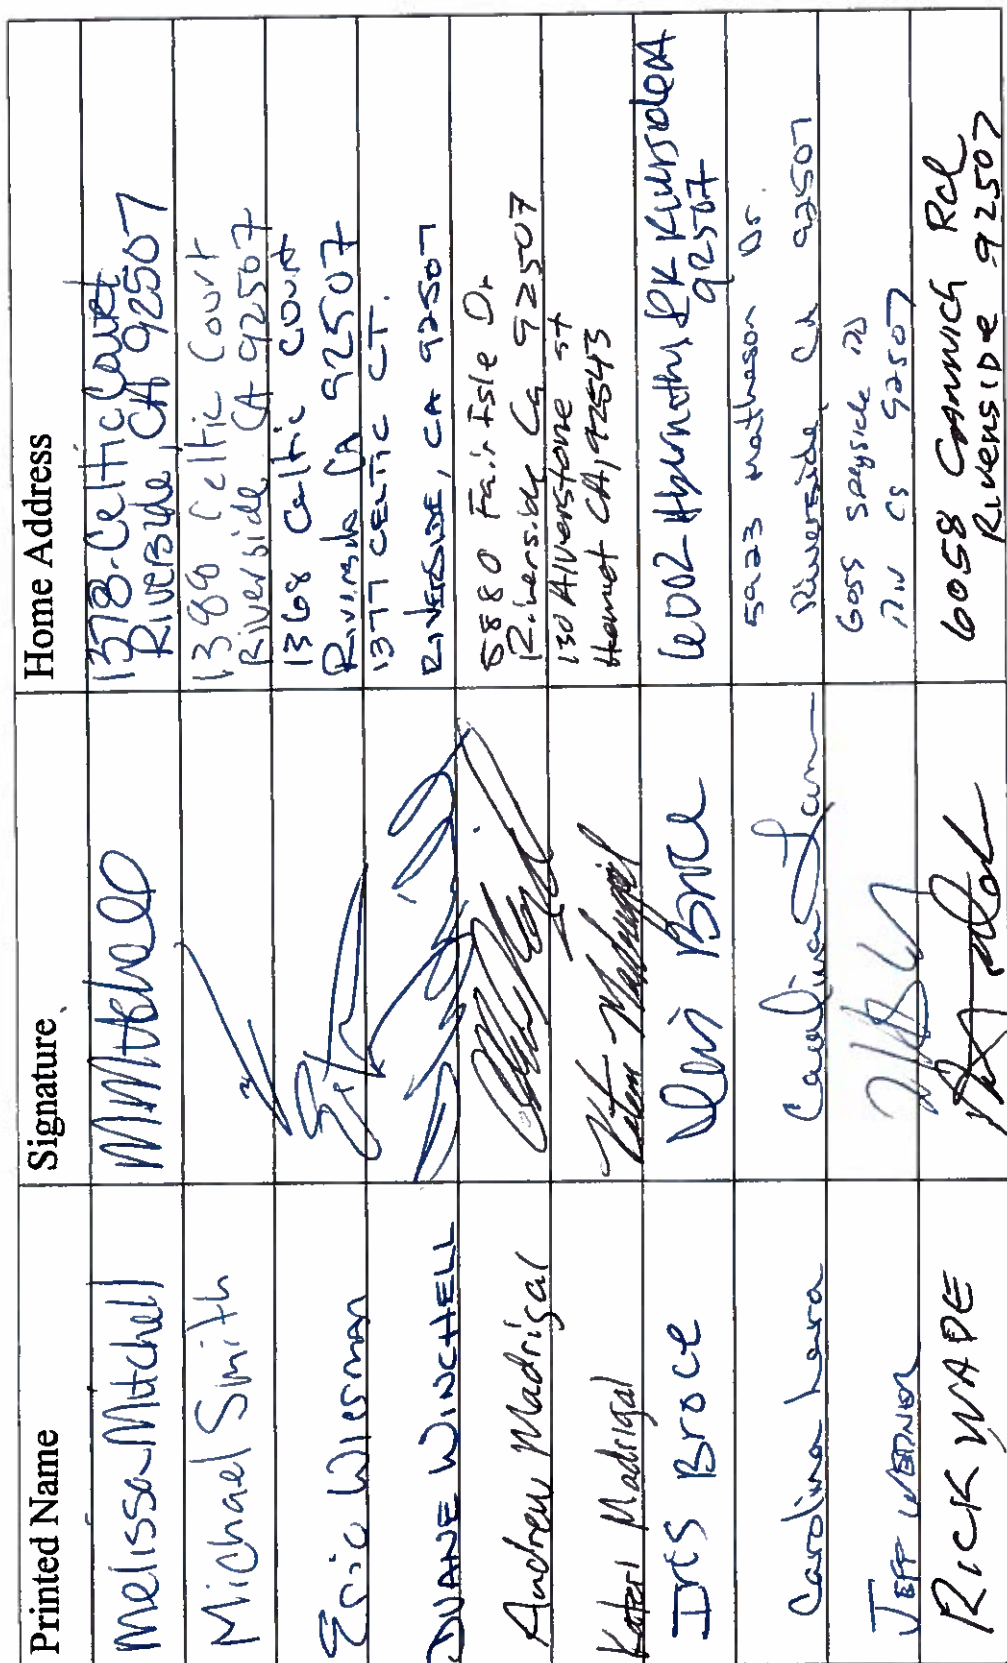 Printed Name Signature Home Address
Melissa Mitchell MMitchell 1378 Celtic Court
Riverside, CA 92507
Michael Smith 1388 Celtic Court
Riverside, CA 92507
Eric Wiesman 1368 Celtic Court
Riverside CA 92507
DUANE WINCHELL 1377 CELTIC CT.
RIVERSIDE, CA 92507
Andrew Madrigal 5880 Fair Isle Dr
Riverside Ca 92507
Kateri Madrigal Kateri Madrigal 130 Alverstone st
Hemet CA, 92543
Iris Broce Iris Broce 6002 Abernathy
92507
Carolina Lara Carolina Lara 5923 Matheson Dr.
Riverside, Ca 92507
JEFF 6055 Speyside RD
92507
RICK WADE 6058 Cannich Rd
Riverside 92507